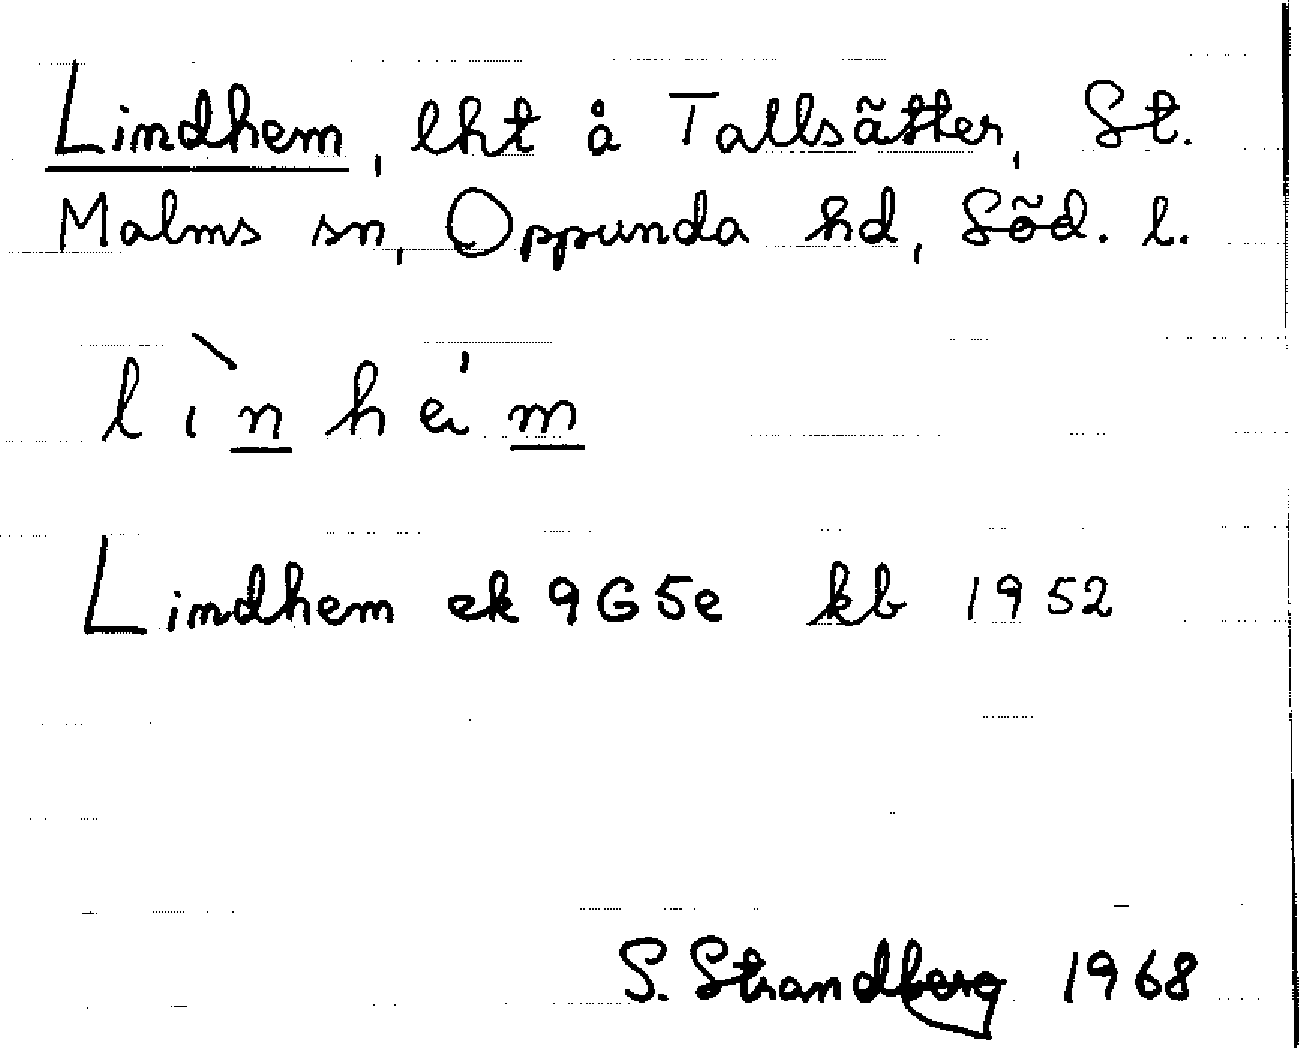 Lindhem, lht å Tallsätter, St.
Malms sn, Oppunda hd, Söd. l.
lìnhèm
Lindhem ek 9G5e kb 1952
S. Strandberg 1968